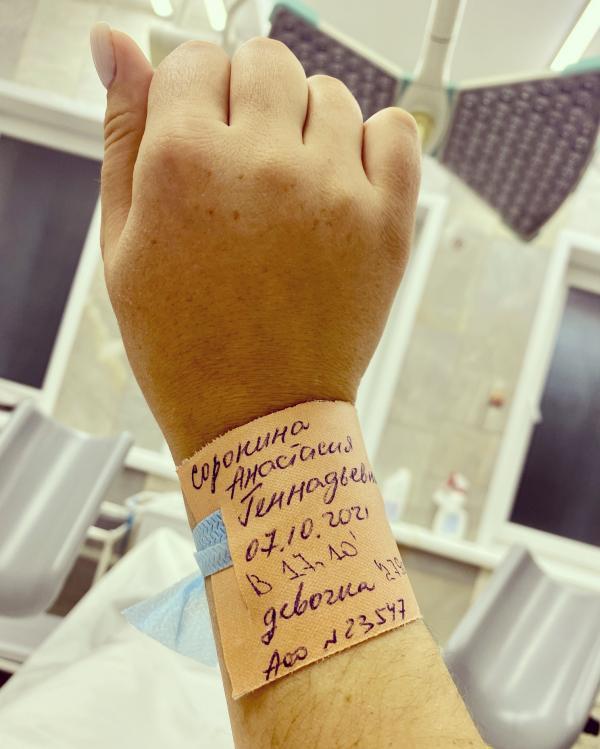 Сорокина
Анастасия
Геннадьевн
07.10.2021
В 17.10'
девочка
АФО №23547